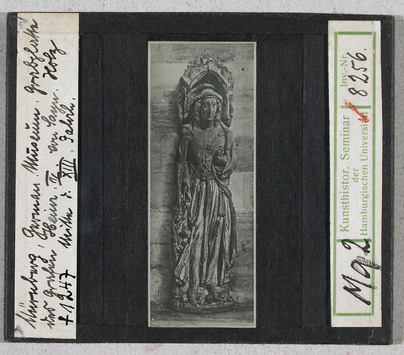 Nürnberg, German. Museum. Grabplatte
des Grafen Heinr. III von Sayn. Holz
† 1247 Mitte d. XIII. Jahrh.
Kunsthistor. Seminar
der
Hamburgischen Universität
Inv.-Nr.
8256